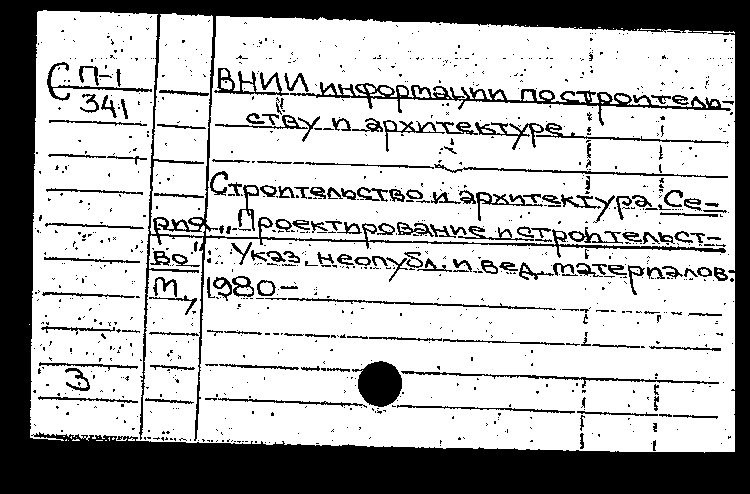 С П-1
341
ВНИИ информации по строитель-
ству и архитектуре.
Строительство и архитектура. Се-
рия „Проектирование и строительст-
во": Указ. неопубл. и вед. материалов.
М., 1980-
3